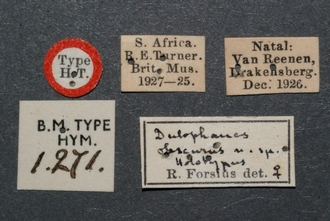 Type
H.T.
S. Africa.
R. E. Turner.
Brit. Mus.
1927—25.
Natal:
Van Reenen,
Drakensberg.
Dec. 1926.
B.M. TYPE
HYM.
1.271.
Dulophanes
obscurus n. sp.
Holotypus
R. Forsius det. ♀